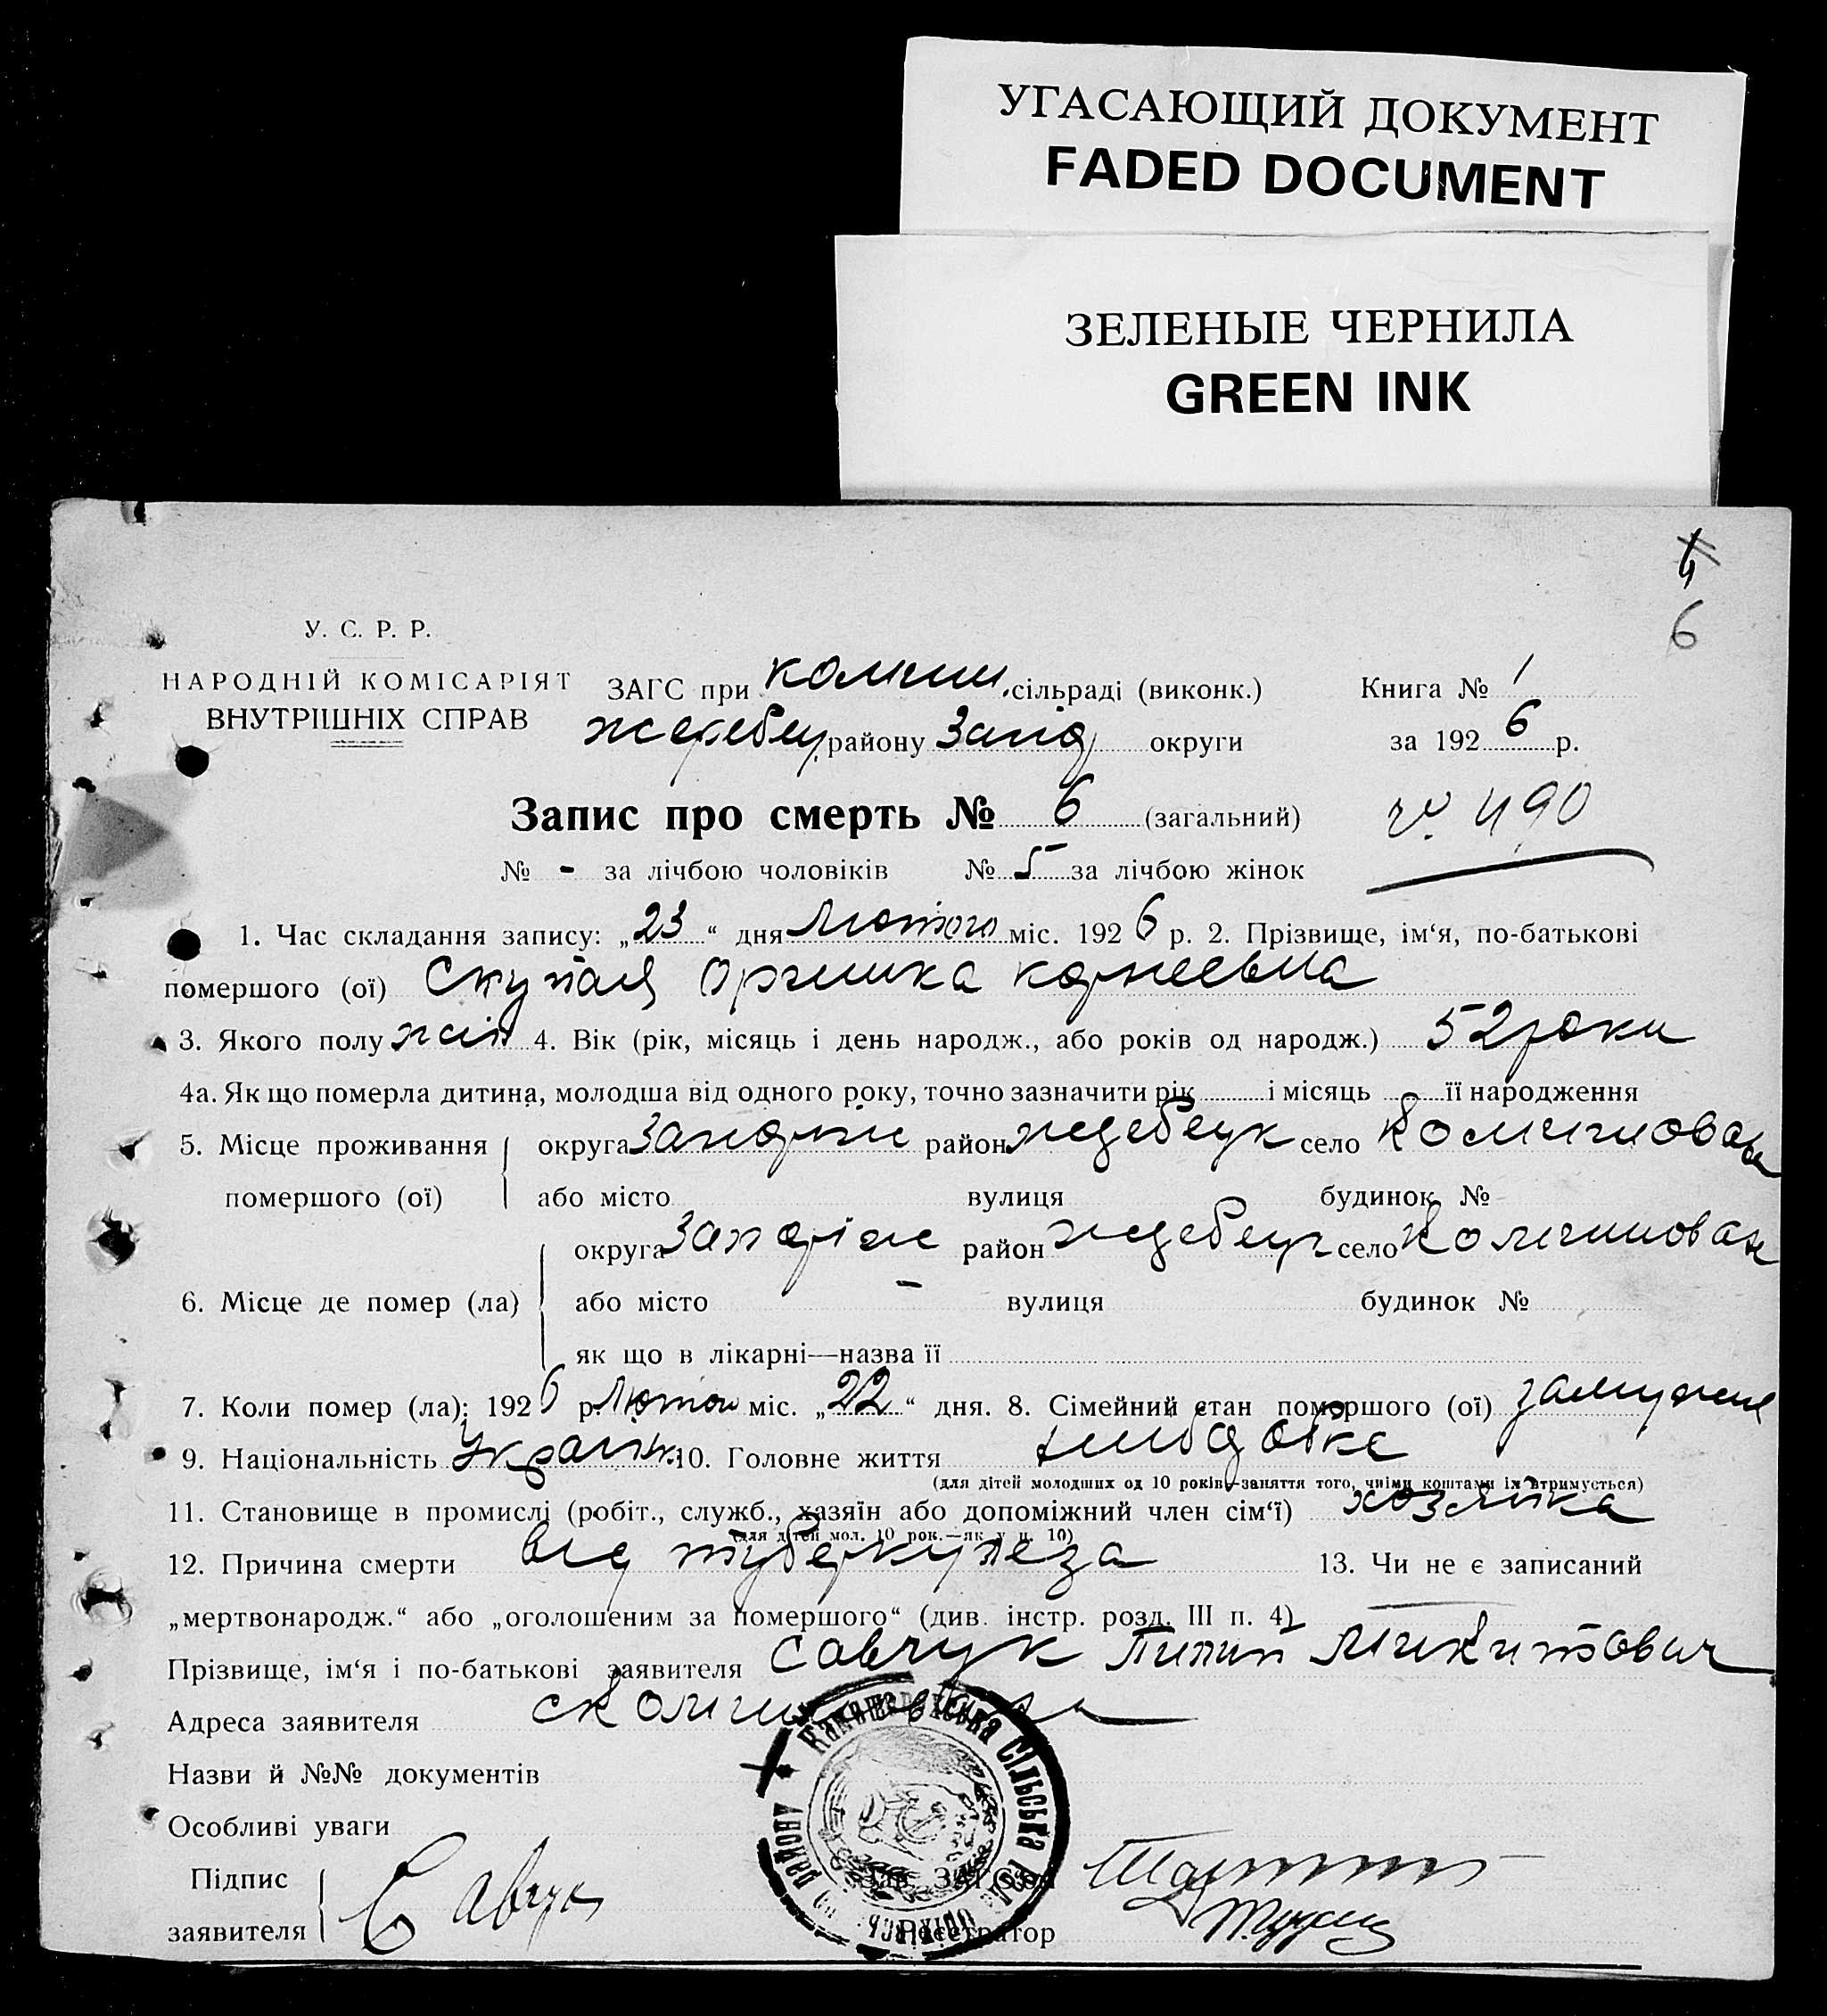 УГАСАЮЩИЙ ДОКУМЕНТ
FADED DOCUMENT
ЗЕЛЕНЫЕ ЧЕРНИЛА
GREEN INK
4
6
У. С. Р. Р.
НАРОДНІЙ КОМІСАРІЯТ
ВНУТРІШНІХ СПРАВ
ЗАГС при комиш. сільраді (виконк.) Книга № 1
жеребец. району Запор округи за 192 6 р.
Запис про смерть № 6 (загальний) 490
№ - за лічбою чоловіків № 5 за лічбою жінок
1. Час складання запису: „23“ дня Лютого міс. 192 6 р. 2. Прізвище, ім‘я, по-батькові
помершого (ої) Скупая Оришка корнеевна
3. Якого полу жін 4. Вік (рік, місяць і день народж., або років од народж.) 52 роки
4а. Як що померла дитина, молодша від одного року, точно зазначити рік і місяць її народження
5. Місце проживання округа Запоріж район жеребецк село Комишоваха
помершого (ої) або місто вулиця будинок №
округа Запоріж район жеребецк село Комишоваха
6. Місце де помер (ла) або місто - вулиця будинок №
як що в лікарні—назва її
7. Коли помер (ла): 192 6 р. Лютого міс. „22“ дня. 8. Сімейний стан помершого (ої) замужня
9. Національність Україн. 10. Головне життя
(для дітей молодших од 10 років—заняття того, чиїми коштами їх втримується)
11. Становище в промислі (робіт., служб., хазяїн або допоміжний член сім‘ї) хозяйка
(для дітей мол. 10 рок.—як у п. 10)
12. Причина смерти від туберкулеза 13. Чи не є записаний
„мертвонародж.“ або „оголошеним за помершого“ (див. інстр. розд. III п. 4)
Прізвище, ім‘я і по-батькові заявителя Савчук Пилип Микитович
Адреса заявителя с Комишоваха
Назви й №№ документів
Особливі уваги
Сільська Рада
району
Підпис
заявителя Савчук
Зав. ЗАГСом
Реєстратор